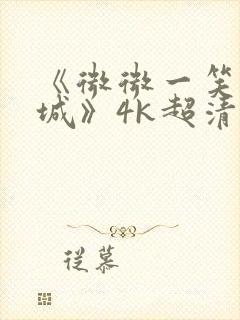 《微微一笑
城》4K超清
從慕